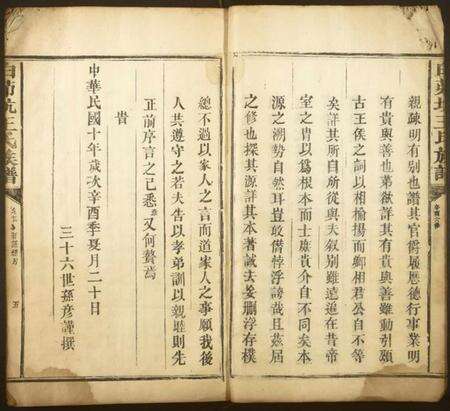 親疎明有別也讚其官爵履歷德行事業明
有貴與善也弟猷詳其有貴與善雖動引頞
古王侯之詞以相揄揚而鄉相君公自不等
矣詳其所自所從與夫叙别雖遠追在昔帝
室之胄以爲根本而士庶貴介自不同矣本
源之溯勢自然耳豈敢僭悖浮誇哉且茲居
之修也探其源詳其本著誠夫妄刪浮存樸
總不過以家人之言而道家人之事願我後
人共遵守之若夫告以孝弟訓以親睦則先
正前序言之已悉又何贅焉
旹
中華民國十年歲次辛酉季夏月二十日
三十六世孫彦謹撰
白茆坑王氏族譜
五